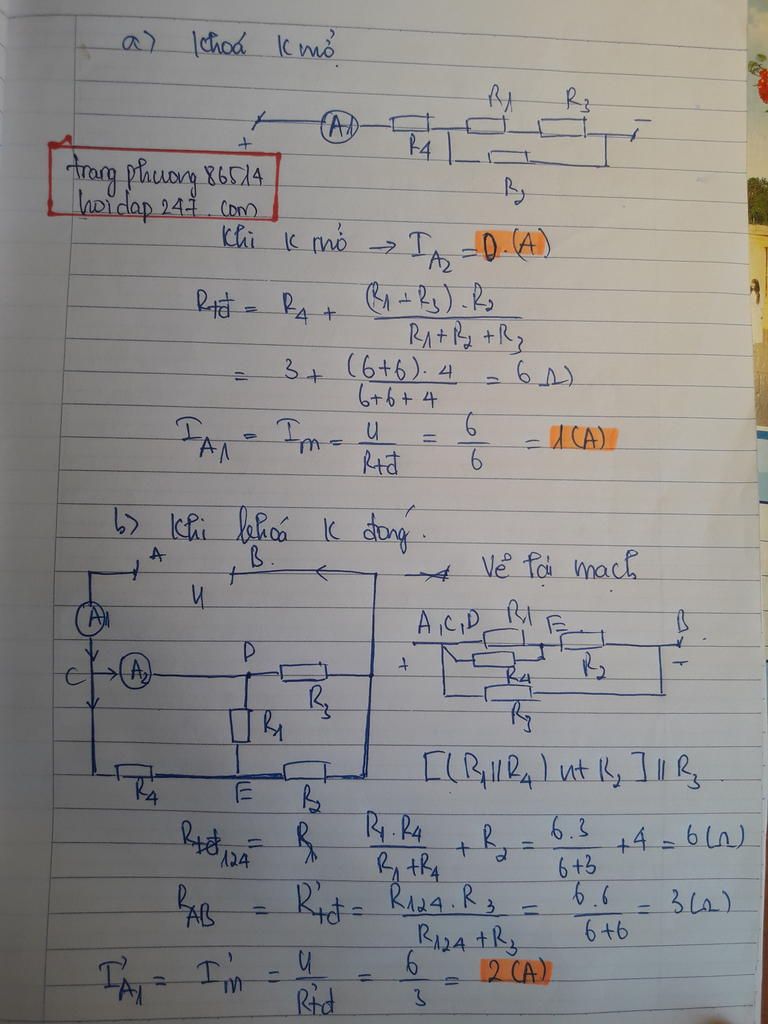 a) Khoá K mở
A1 R4 R1 R3
+ -
R2
trang phuong 86514
hoidap 247. com
Khi K mở → I_A2 = 0.(A)
Rtđ = R4 + (R1 + R3).R2 / R1 + R2 + R3
= 3 + (6+6).4 / 6+6+4 = 6 Ω)
I_A1 = Im = U / Rtđ = 6 / 6 = 1(A)
b) Khi khoá K đóng.
A B.
U
A1
C A2 D R3
R1
R4 E R2
→ Vẽ lại mạch
A,C,D R1 E R2 B
+ R4 -
R3
[(R1//R4) nt R2] // R3
Rtđ124 = R1.R4 / R1 + R4 + R2 = 6.3 / 6+3 + 4 = 6(Ω)
R_AB = R'tđ = R124.R3 / R124 + R3 = 6.6 / 6+6 = 3(Ω)
I'_A1 = I'm = U / R'tđ = 6 / 3 = 2(A)